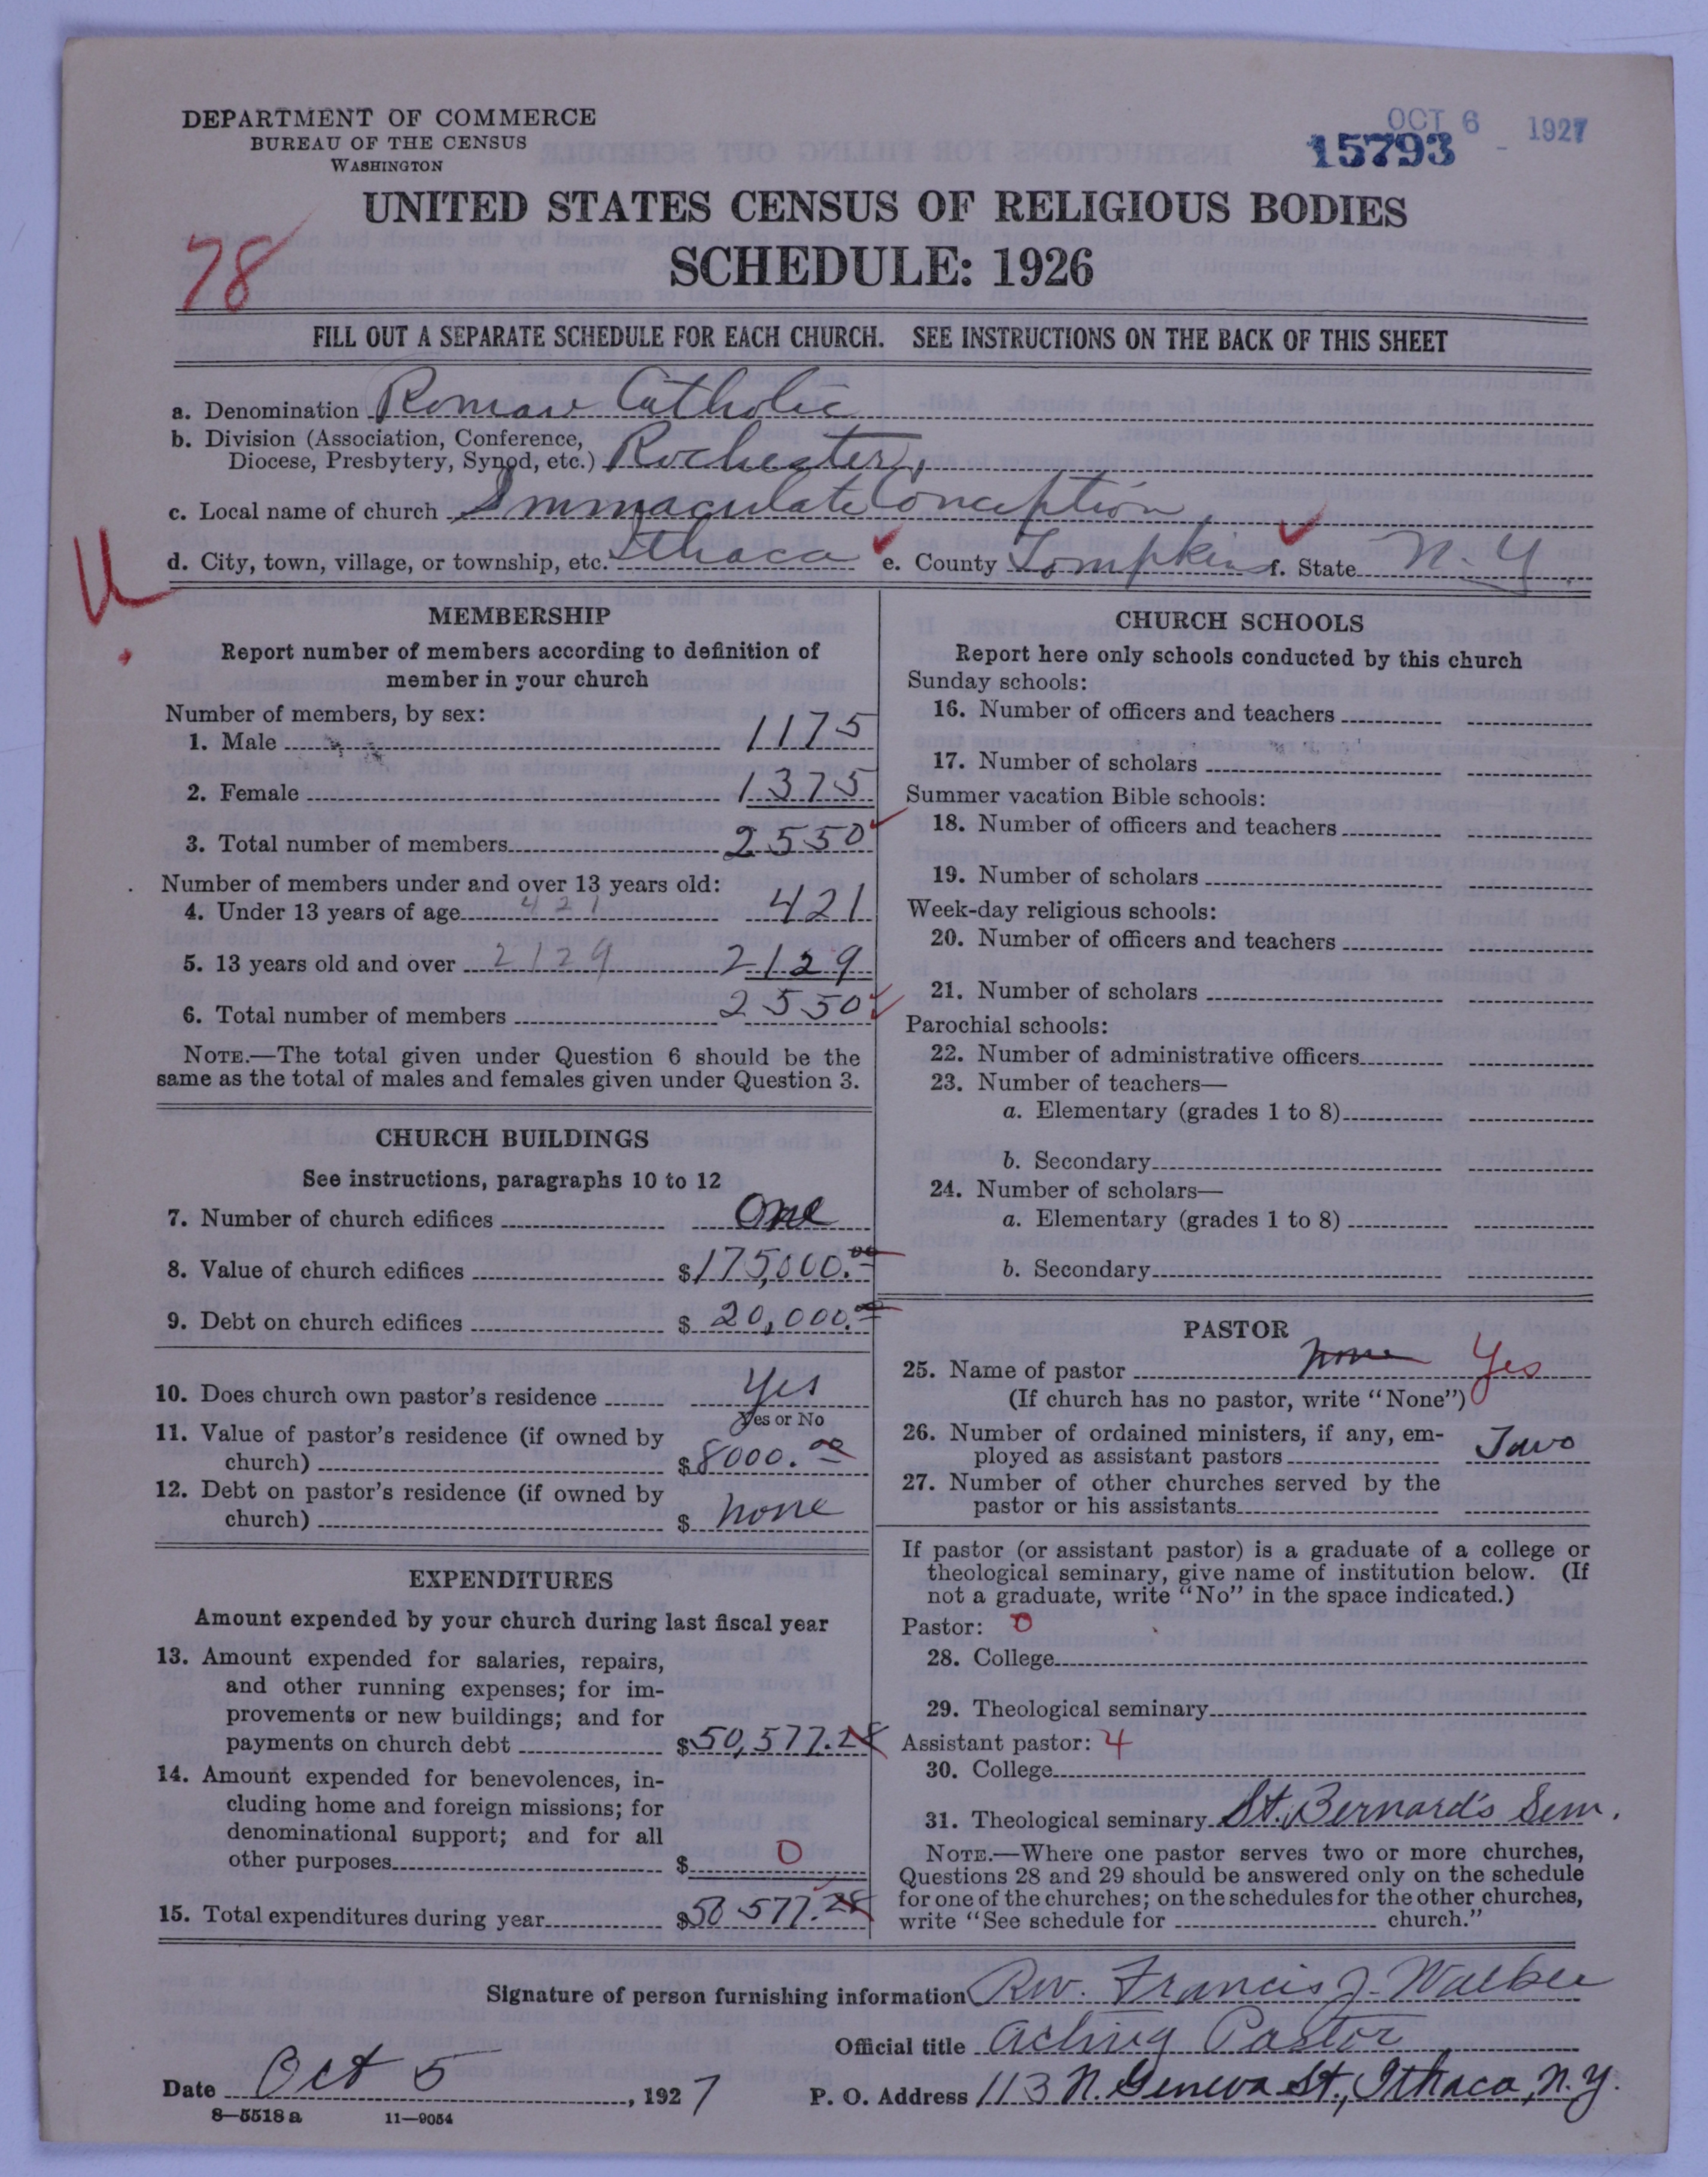 DEPARTMENT OF COMMERCE
BUREAU OF THE CENSUS
WASHINGTON
OCT 6 1927
15793
UNITED STATES CENSUS OF RELIGIOUS BODIES
SCHEDULE: 1926
78
FILL OUT A SEPARATE SCHEDULE FOR EACH CHURCH. SEE INSTRUCTIONS ON THE BACK OF THIS SHEET
a. Denomination Roman Catholic
b. Division (Association, Conference,
Diocese, Presbytery, Synod, etc.) Rochester,
c. Local name of church Immaculate Conception
d. City, town, village, or township, etc. Ithaca e. County Tompkins f. State N.Y.
U
MEMBERSHIP
Report number of members according to definition of
member in your church
Number of members, by sex:
1. Male 1175
2. Female 1375
3. Total number of members 2550
Number of members under and over 13 years old:
4. Under 13 years of age 421 421
5. 13 years old and over 2129 2129
6. Total number of members 2550
NOTE.—The total given under Question 6 should be the
same as the total of males and females given under Question 3.
CHURCH BUILDINGS
See instructions, paragraphs 10 to 12
7. Number of church edifices One
8. Value of church edifices $175,000.00
9. Debt on church edifices $20,000.00
10. Does church own pastor's residence Yes
Yes or No
11. Value of pastor's residence (if owned by
church) $8000.00
12. Debt on pastor's residence (if owned by
church) $ none
EXPENDITURES
Amount expended by your church during last fiscal year
13. Amount expended for salaries, repairs,
and other running expenses; for im-
provements or new buildings; and for
payments on church debt $50,577.28
14. Amount expended for benevolences, in-
cluding home and foreign missions; for
denominational support; and for all
other purposes $ 0
15. Total expenditures during year $50 577.28
CHURCH SCHOOLS
Report here only schools conducted by this church
Sunday schools:
16. Number of officers and teachers
17. Number of scholars
Summer vacation Bible schools:
18. Number of officers and teachers
19. Number of scholars
Week-day religious schools:
20. Number of officers and teachers
21. Number of scholars
Parochial schools:
22. Number of administrative officers
23. Number of teachers—
a. Elementary (grades 1 to 8)
b. Secondary
24. Number of scholars—
a. Elementary (grades 1 to 8)
b. Secondary
PASTOR
25. Name of pastor none Yes
(If church has no pastor, write "None")
26. Number of ordained ministers, if any, em-
ployed as assistant pastors Two
27. Number of other churches served by the
pastor or his assistants
If pastor (or assistant pastor) is a graduate of a college or
theological seminary, give name of institution below. (If
not a graduate, write "No" in the space indicated.)
Pastor: 0
28. College
29. Theological seminary
Assistant pastor: 4
30. College
31. Theological seminary St. Bernard's Sem.
NOTE.—Where one pastor serves two or more churches,
Questions 28 and 29 should be answered only on the schedule
for one of the churches; on the schedules for the other churches,
write "See schedule for church."
Signature of person furnishing information Rev. Francis J. Walker
Official title Acting Pastor
Date Oct 5, 1927 P. O. Address 113 N. Geneva St., Ithaca, N.Y.
8—5518 a 11—9054